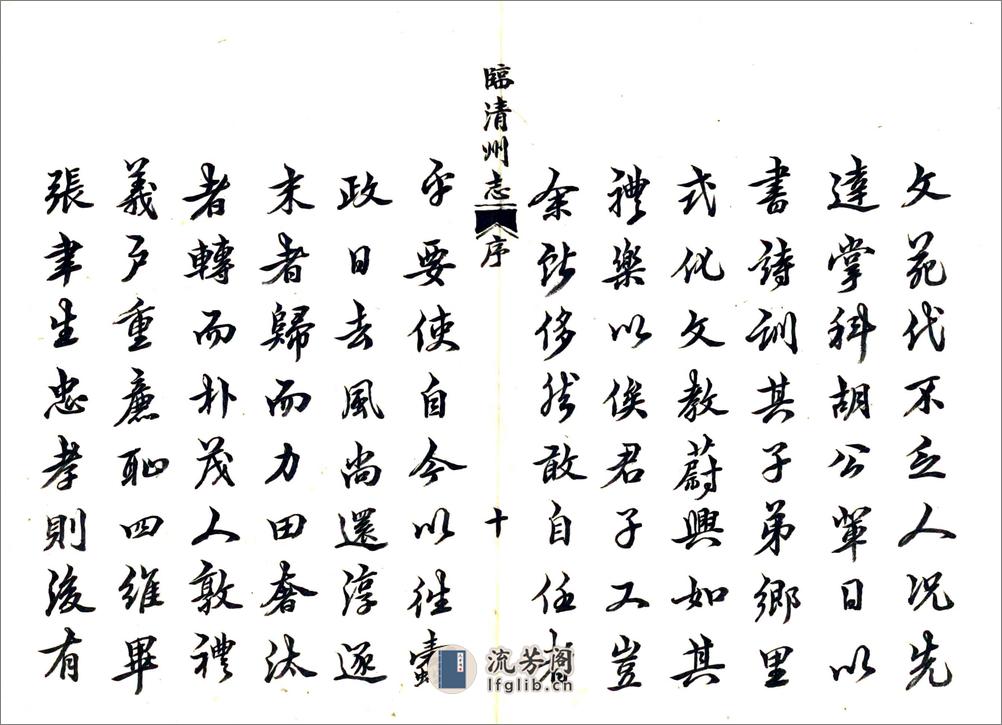 文苑代不乏人况先
達掌科胡公軰日以
書詩訓其子弟鄉里
式化文教蔚興如其
禮樂以俟君子又豈
余所侈然敢自任者
臨清州志 序 十
乎要使自今以往蠹
政日去風尚還淳逐
末者歸而力田奢汰
者轉而朴茂人敦禮
義戶重廉恥四維畢
張聿生忠孝則後有
流芳阁
lfglib.cn